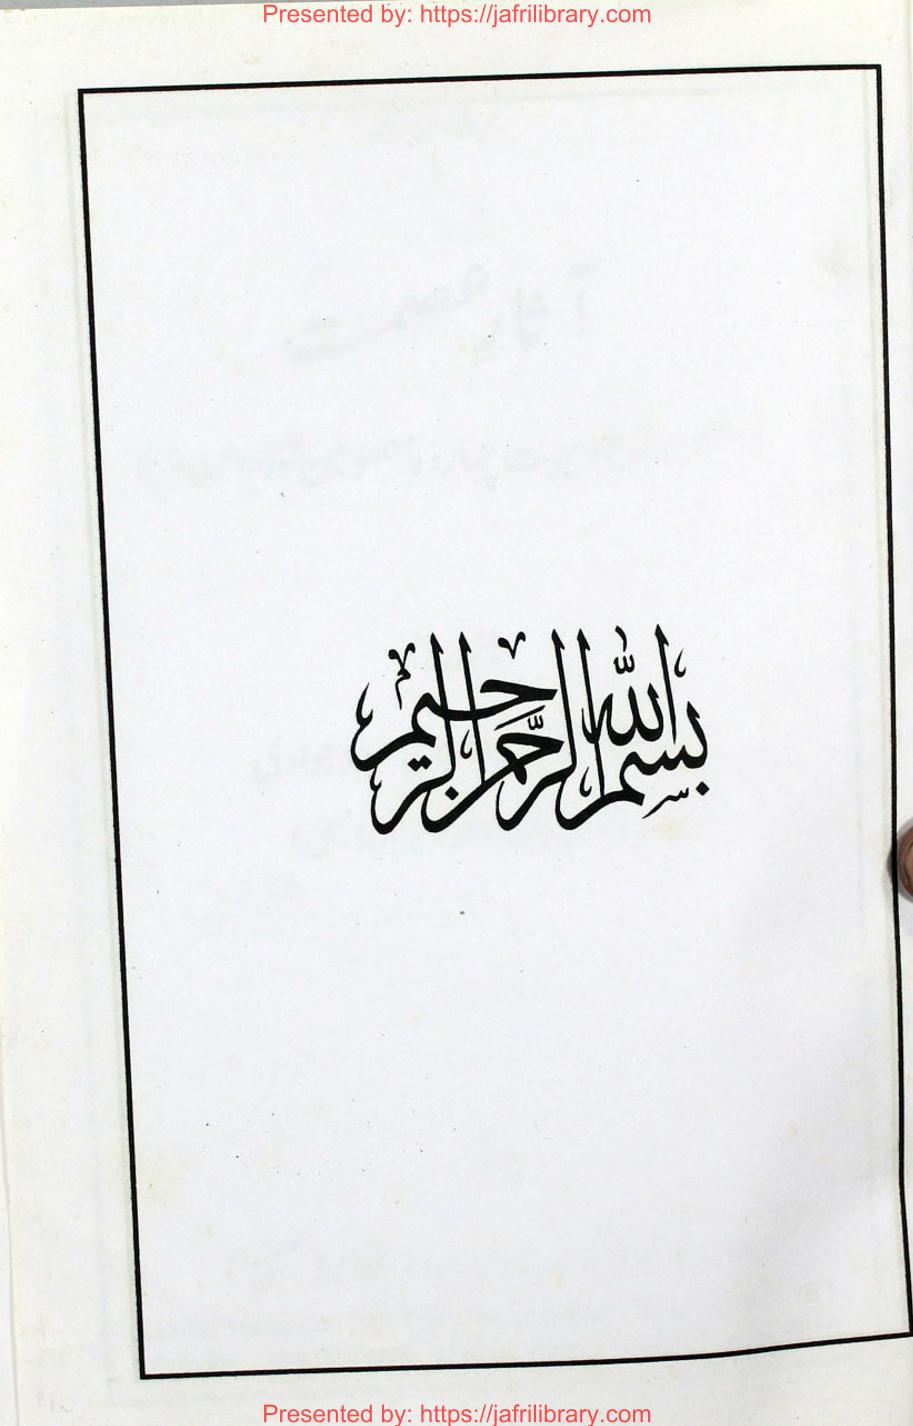 Presented by: https://jafrilibrary.com
بسم الله الرحمن الرحيم
Presented by: https://jafrilibrary.com